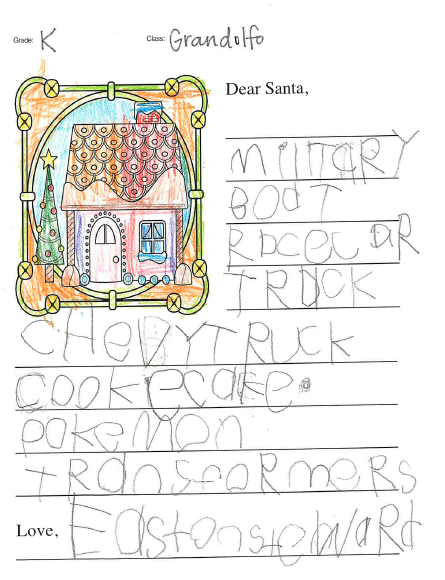 Grade: K Class: Grandolfo
Dear Santa,
MILITARY
BOAT
RacecaR
TRUCK
CHEVYTRUCK
cookecake.
pokemon
tRanscoRmeRs
Love, Eastonsteward